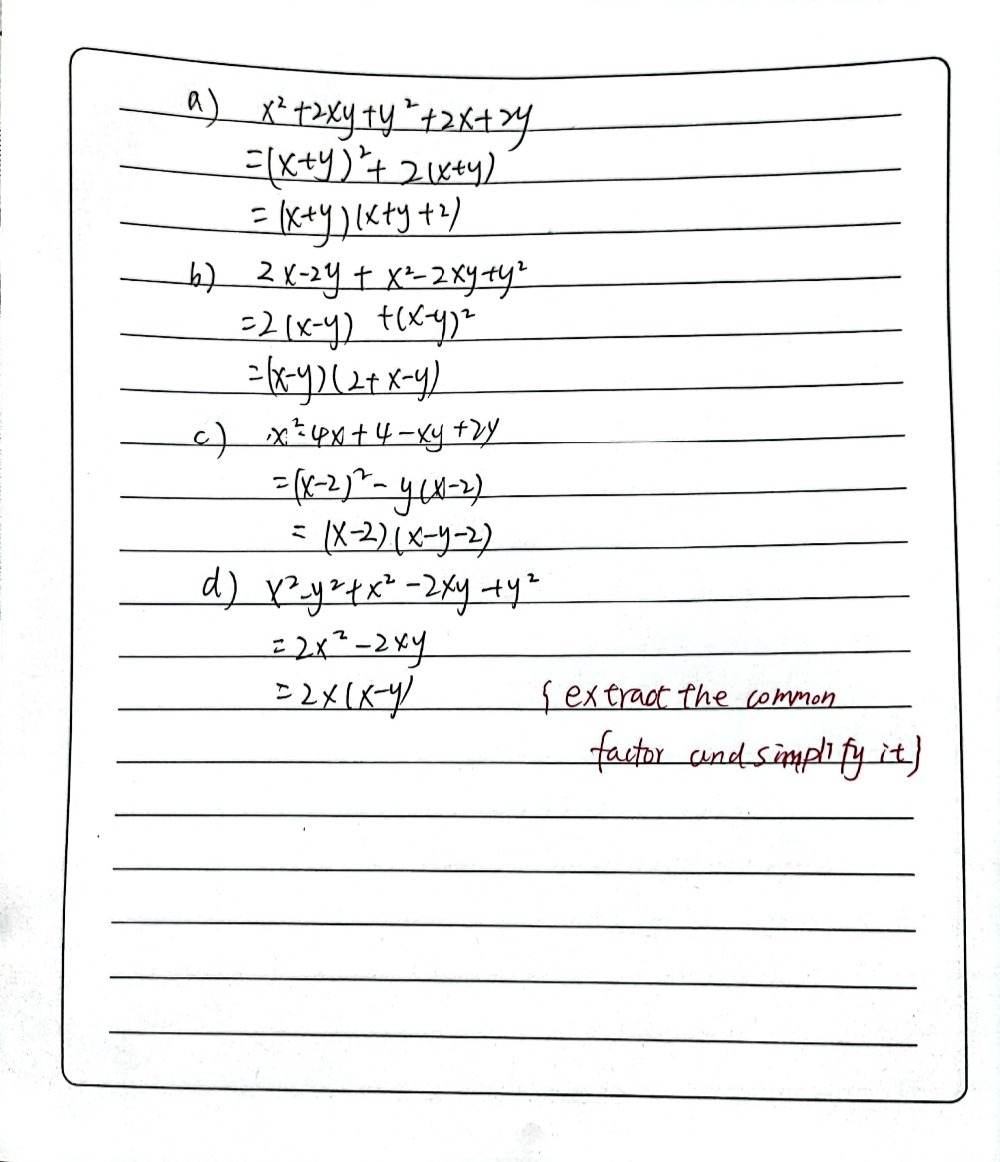 a) x²+2xy+y²+2x+2y
=(x+y)²+2(x+y)
=(x+y)(x+y+2)
b) 2x-2y+x²-2xy+y²
=2(x-y)+(x-y)²
=(x-y)(2+x-y)
c) x²-4x+4-xy+2y
=(x-2)²-y(x-2)
=(x-2)(x-y-2)
d) x²-y²+x²-2xy+y²
=2x²-2xy
=2x(x-y)
{extract the common
factor and simplify it}